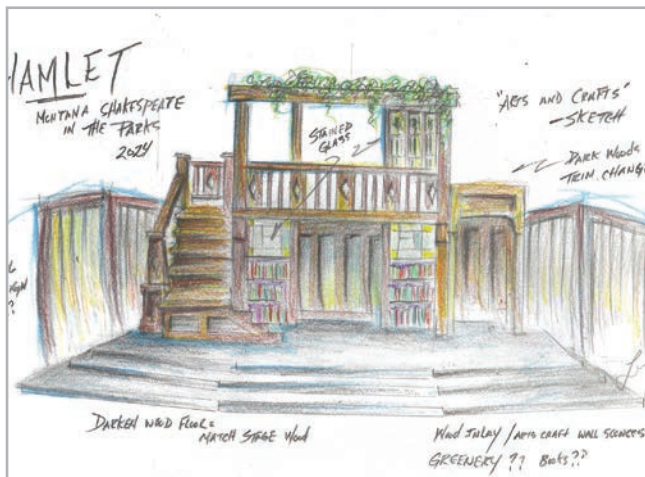 HAMLET
MONTANA SHAKESPEARE
IN THE PARKS
2024
STAINED
GLASS
"ARTS AND CRAFTS"
-SKETCH
DARK WOODS
TRIM CHANG
?
DARKEN WOOD FLOORS
MATCH STAGE WOOD
WOOD INLAY / ARTS CRAFT WALL SCONCES
GREENERY ?? BOOKS??